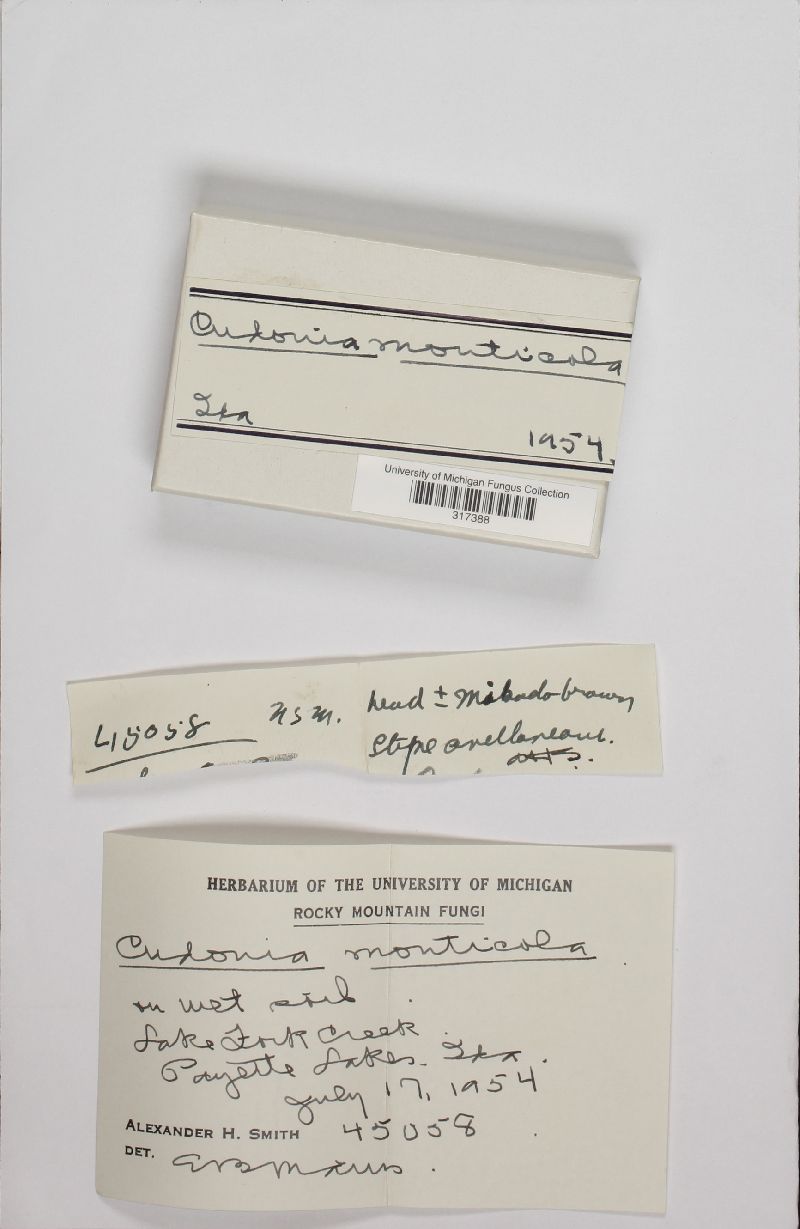 Cudonia monticola
Ida
1954.
University of Michigan Fungus Collection
317388
45058
head ± Mikado brown
stipe avellaneous.
HERBARIUM OF THE UNIVERSITY OF MICHIGAN
ROCKY MOUNTAIN FUNGI
Cudonia monticola
on wet soil
Lake Fork Creek
Payette Lakes. Ida.
July 17, 1954
ALEXANDER H. SMITH 45058
DET.